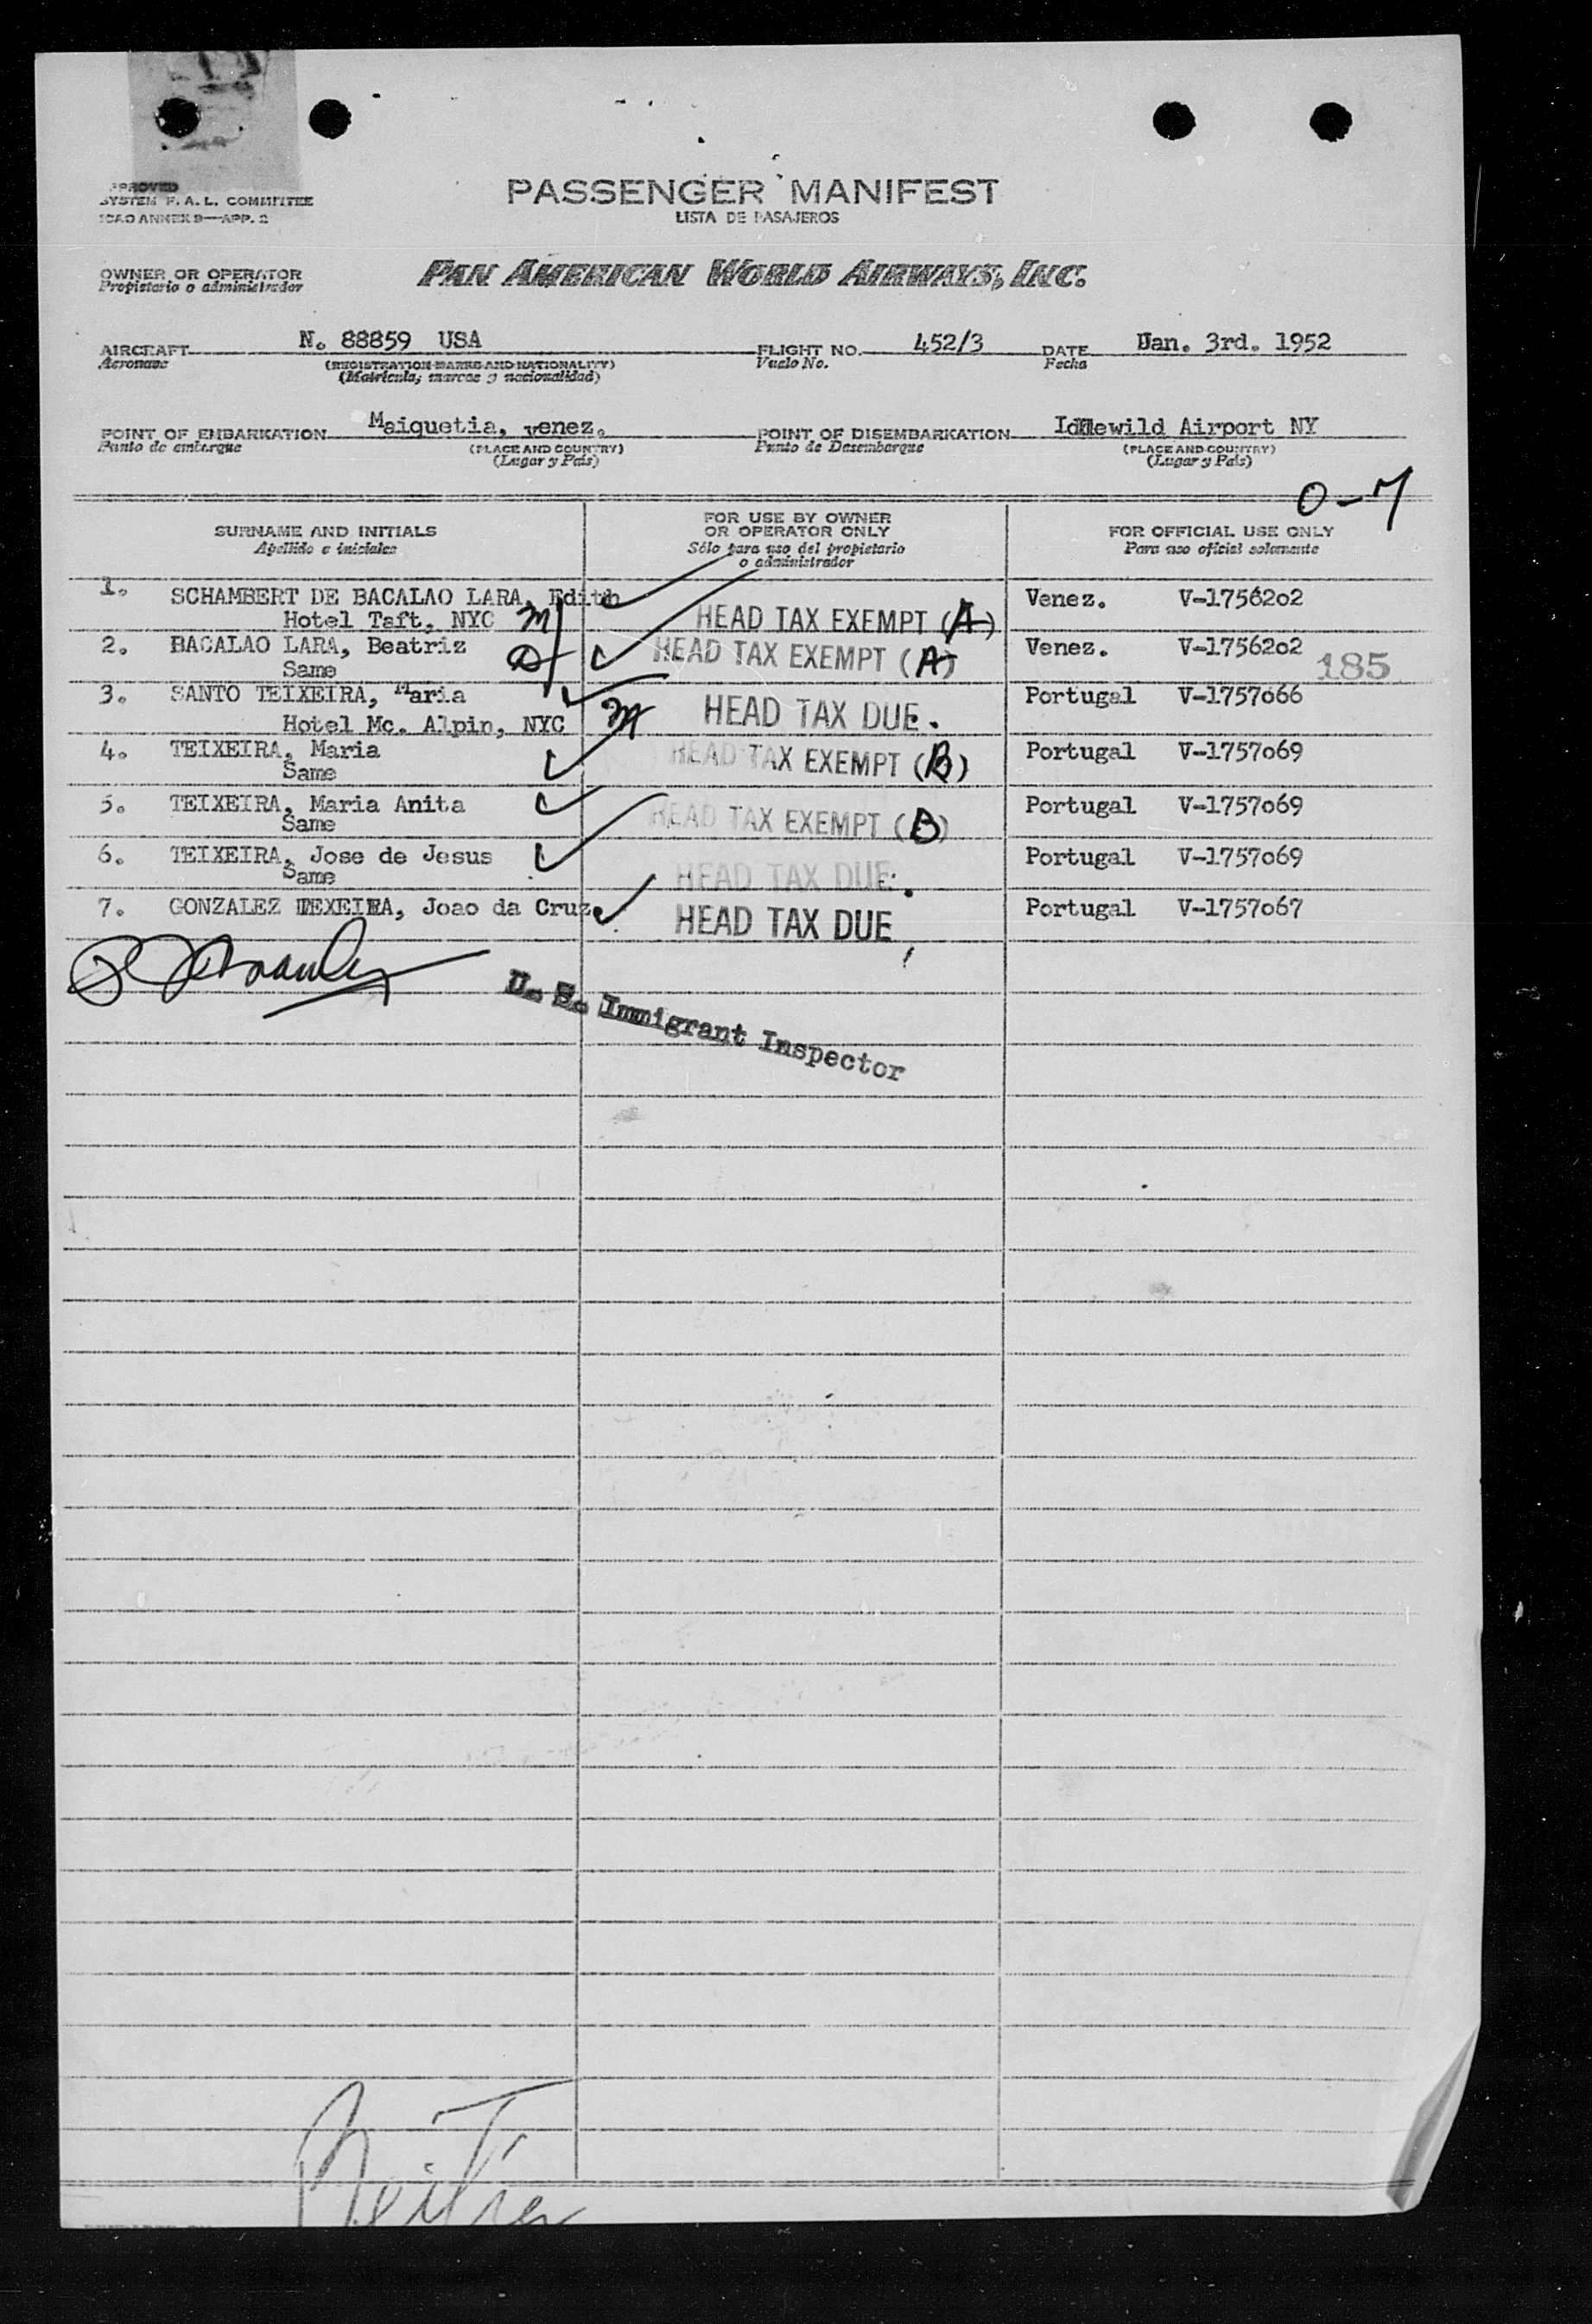 PROVED
SYSTEM F. A. L. COMMITTEE
ICAO ANNEX 9—APP. 2
PASSENGER MANIFEST
LISTA DE PASAJEROS
OWNER OR OPERATOR
Propietario o administrador
PAN AMERICAN WORLD AIRWAYS, INC.
AIRCRAFT N. 88859 USA FLIGHT NO. 452/3 DATE Jan. 3rd. 1952
Aeronave (REGISTRATION MARKS AND NATIONALITY) Vuelo No. Fecha
(Matricula, marcas y nacionalidad)
POINT OF EMBARKATION Maiquetia, venez. POINT OF DISEMBARKATION Idlewild Airport NY
Punto de embarque (PLACE AND COUNTRY) Punto de Desembarque (PLACE AND COUNTRY)
(Lugar y País) (Lugar y País)
0-7
SURNAME AND INITIALS FOR USE BY OWNER OR OPERATOR ONLY FOR OFFICIAL USE ONLY
Apellido e iniciales Sólo para uso del propietario o administrador Para uso oficial solamente
1. SCHAMBERT DE BACALAO LARA, Edith Venez. V-1756202
Hotel Taft, NYC M HEAD TAX EXEMPT (A)
2. BACALAO LARA, Beatriz D HEAD TAX EXEMPT (A) Venez. V-1756202
Same 185
3. SANTO TEIXEIRA, Maria HEAD TAX DUE. Portugal V-1757066
Hotel Mc. Alpin, NYC M
4. TEIXEIRA, Maria HEAD TAX EXEMPT (B) Portugal V-1757069
Same
5. TEIXEIRA, Maria Anita HEAD TAX EXEMPT (B) Portugal V-1757069
Same
6. TEIXEIRA, Jose de Jesus HEAD TAX DUE. Portugal V-1757069
Same
7. GONZALEZ TEXEIRA, Joao da Cruz HEAD TAX DUE Portugal V-1757067
U. S. Immigrant Inspector